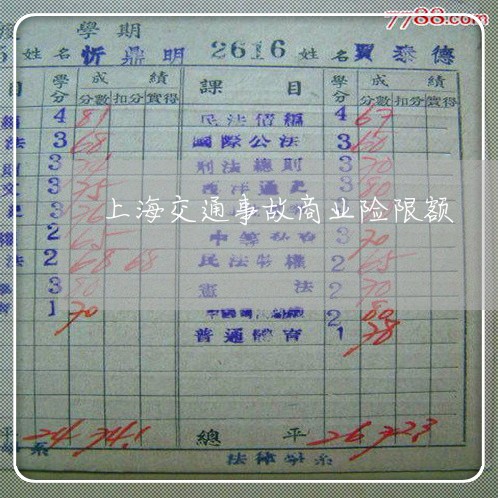 7788.com
學期
姓名 忻鼎明 2616 姓名 賈泰德
目 學分 成績 課目 學分 成績
分數 扣分 實得 分數 扣分 實得
4 81 民法債編 4 67
法 3 68 國際公法 3 60
3 刑法總則 3 70
3 75 3 80
上海交通事故商业险限额
權 2 65 3 70
法 2 68 68 民法物權 2 65
3 80 憲法 2 70
1 70 2 80
普通體育 1 78
平 24 74.1 總平 26 72.3
系 法律學系